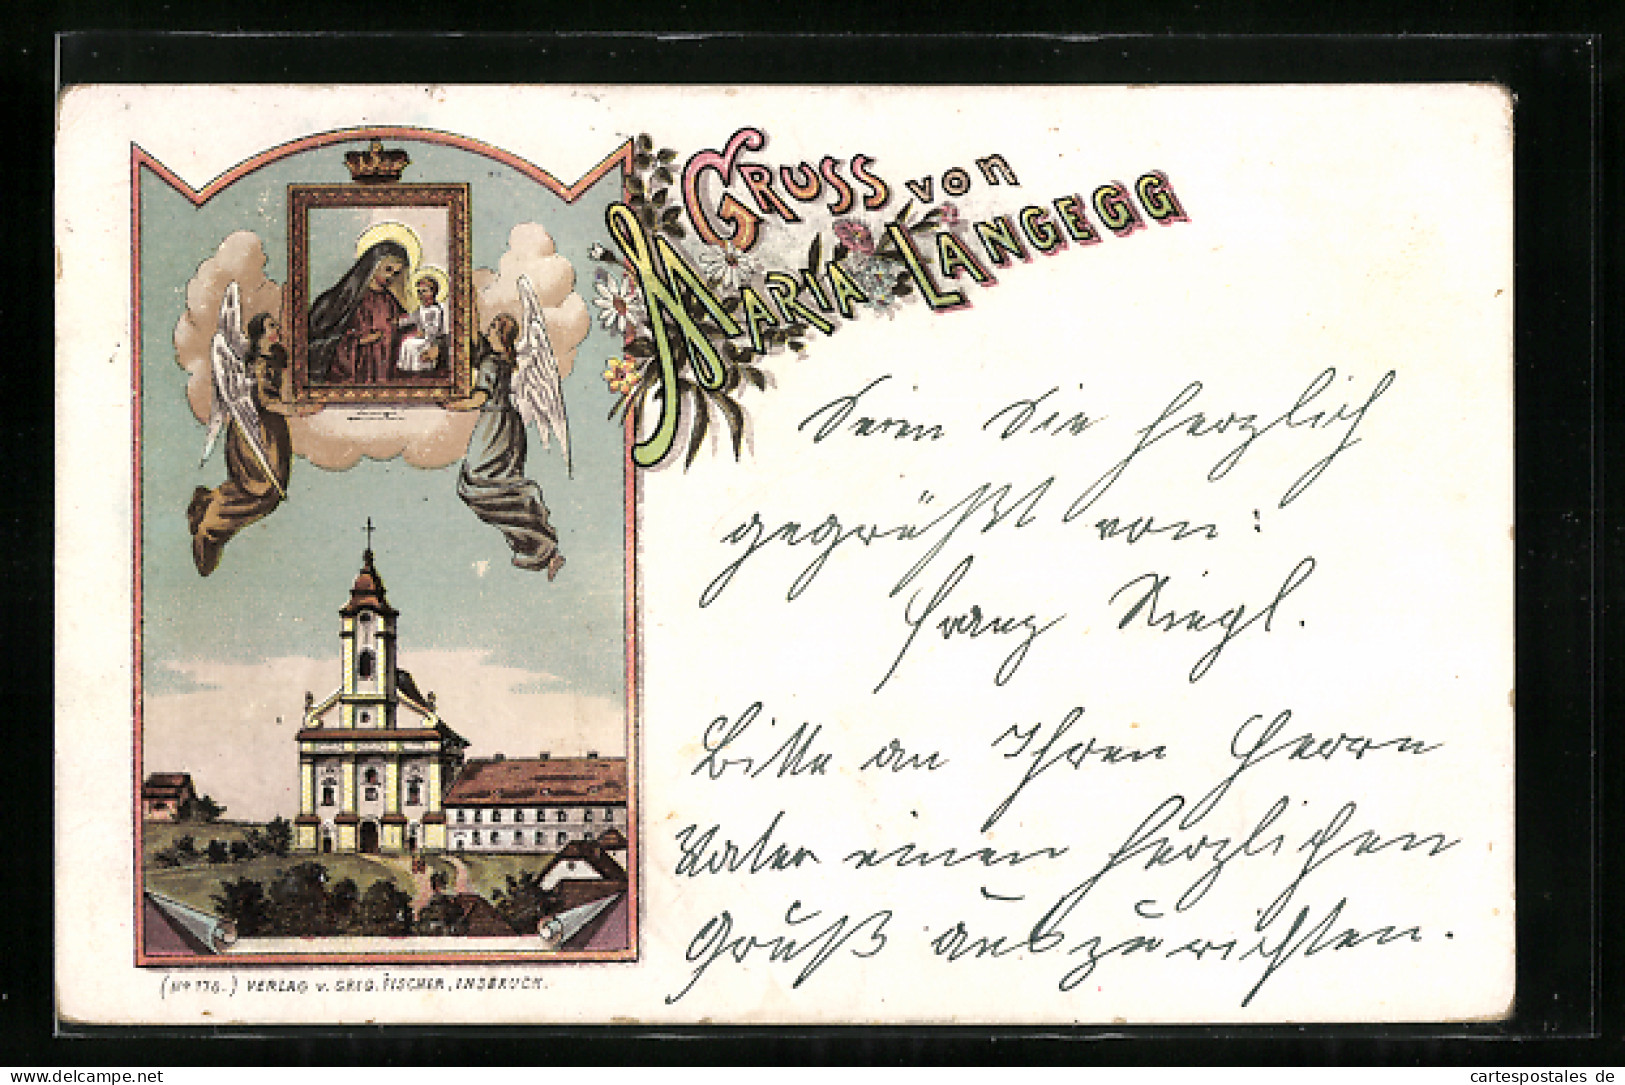 GRUSS von
MARIA LANGEGG
Seien Sie herzlich
gegrüßt von:
Franz Riegl.
Bitte an Ihren Herrn
Vater einen herzlichen
Gruß auszurichten.
(No 176.) VERLAG v. GREG. FISCHER, INSBRUCK.
www.delcampe.net
cartespostales de